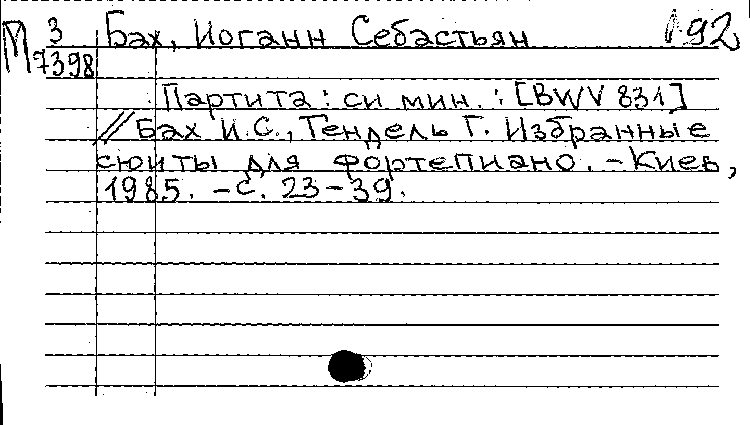 П 3 Бах, Иоганн Себастьян 92
7398
Партита : си мин. : [BWV 831]
// Бах И.С., Гендель Г. Избранные
сюиты для фортепиано. - Киев,
1985. - С. 23-39.